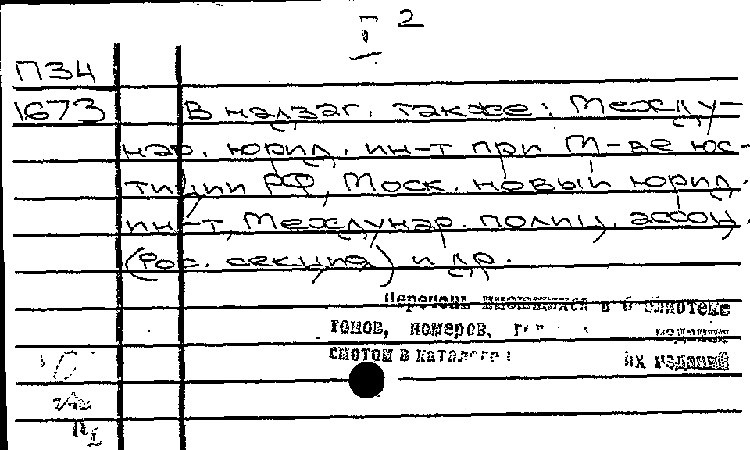 2
П34
1673 В надзаг. также: Между-
нар. юрид. ин-т при М-ве юс-
тиции РФ, Моск. новый юрид.
ин-т, Междунар. полиц. ассоц.
(Рос. секция) и др.
Перечень имеющихся в библиотеке
томов, номеров,
смотри в каталоге их изданий